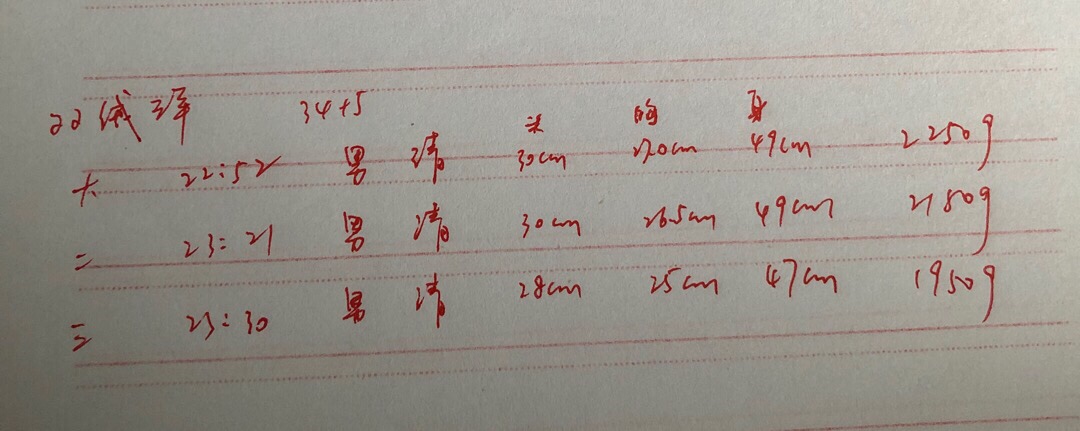 34+5 头 胸 身
大 22:52 男 清 30cm 27.0cm 49cm 2250g
二 23:21 男 清 30cm 26.5cm 49cm 2180g
三 23:30 男 清 28cm 25cm 47cm 1950g